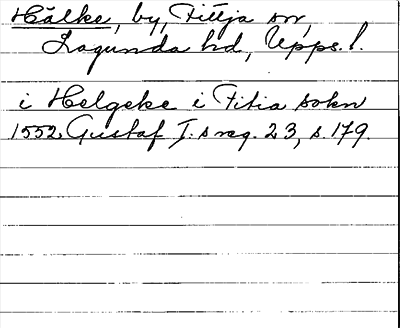 Hälke, by, Fittja sn,
Lagunda hd, Upps. l.
i Helgeke i Fitia sokn
1552. Gustaf I:s reg. 23, s. 179.